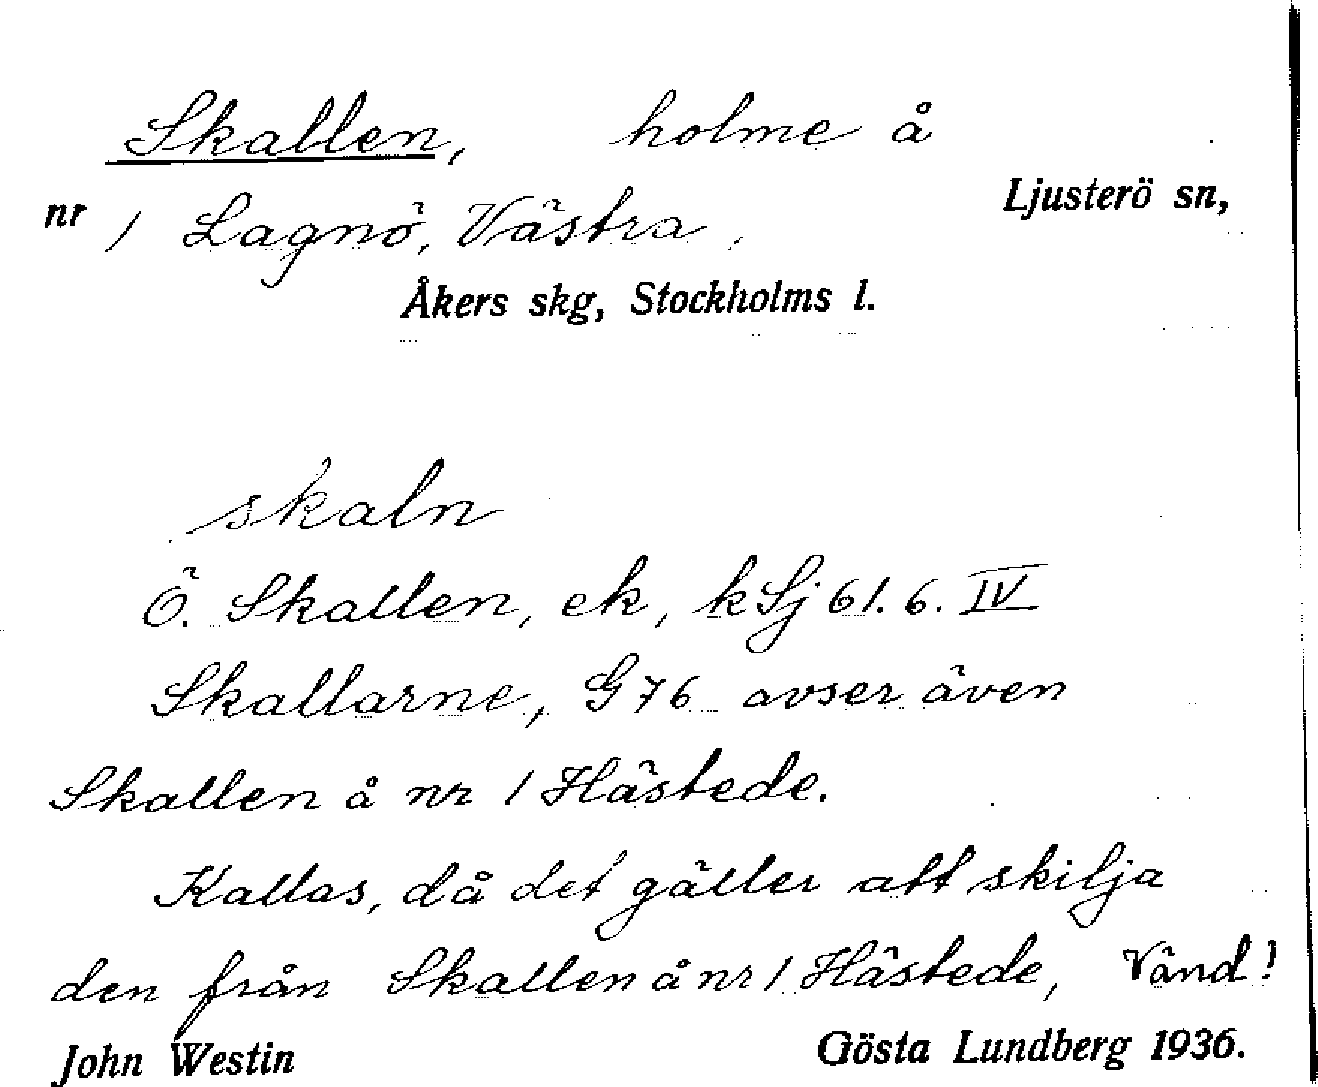 Skallen, holme å
Ljusterö sn,
nr 1 Lagnö, Västra,
Åkers skg, Stockholms l.
skaln
Ö. Skallen, ek, kSj 61. 6. IV
Skallarne, G 76 avser även
Skallen å nr 1 Hästede.
Kallas, då det gäller att skilja
den från Skallen å nr 1 Hästede, Vänd!
John Westin Gösta Lundberg 1936.